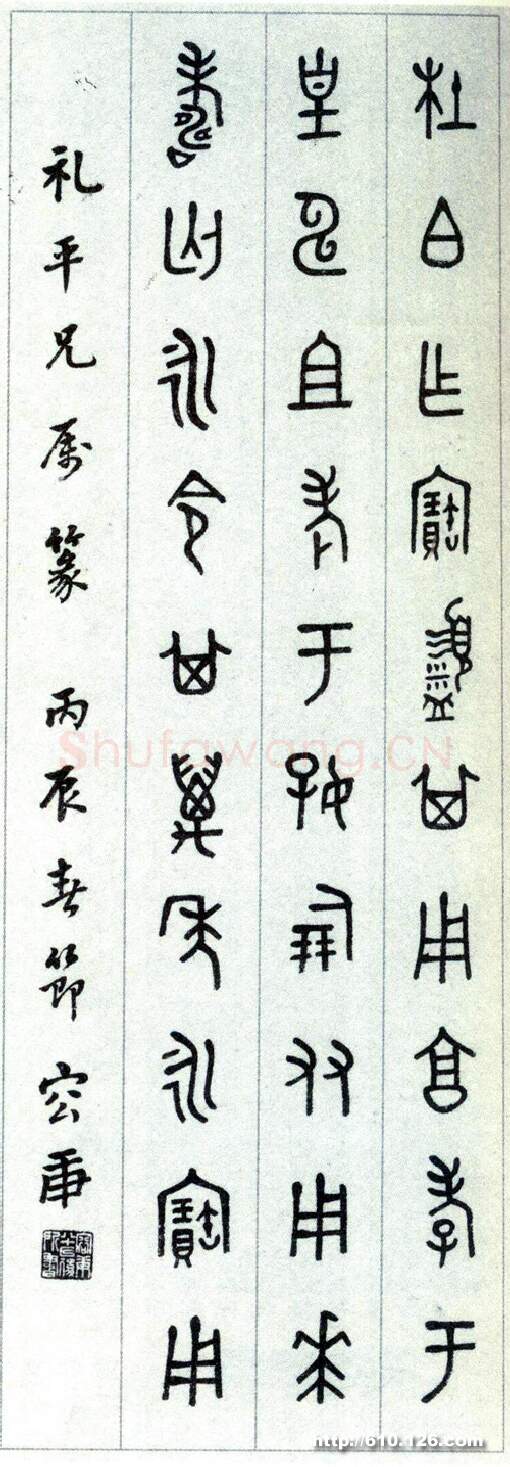 杜白乍寶盨其用享孝于
皇申且考于好倗友用𠦪
壽匄永令其萬年永寶用
礼平兄属篆 丙辰春節 容庚
Shufawang.CN
http://610.126.com